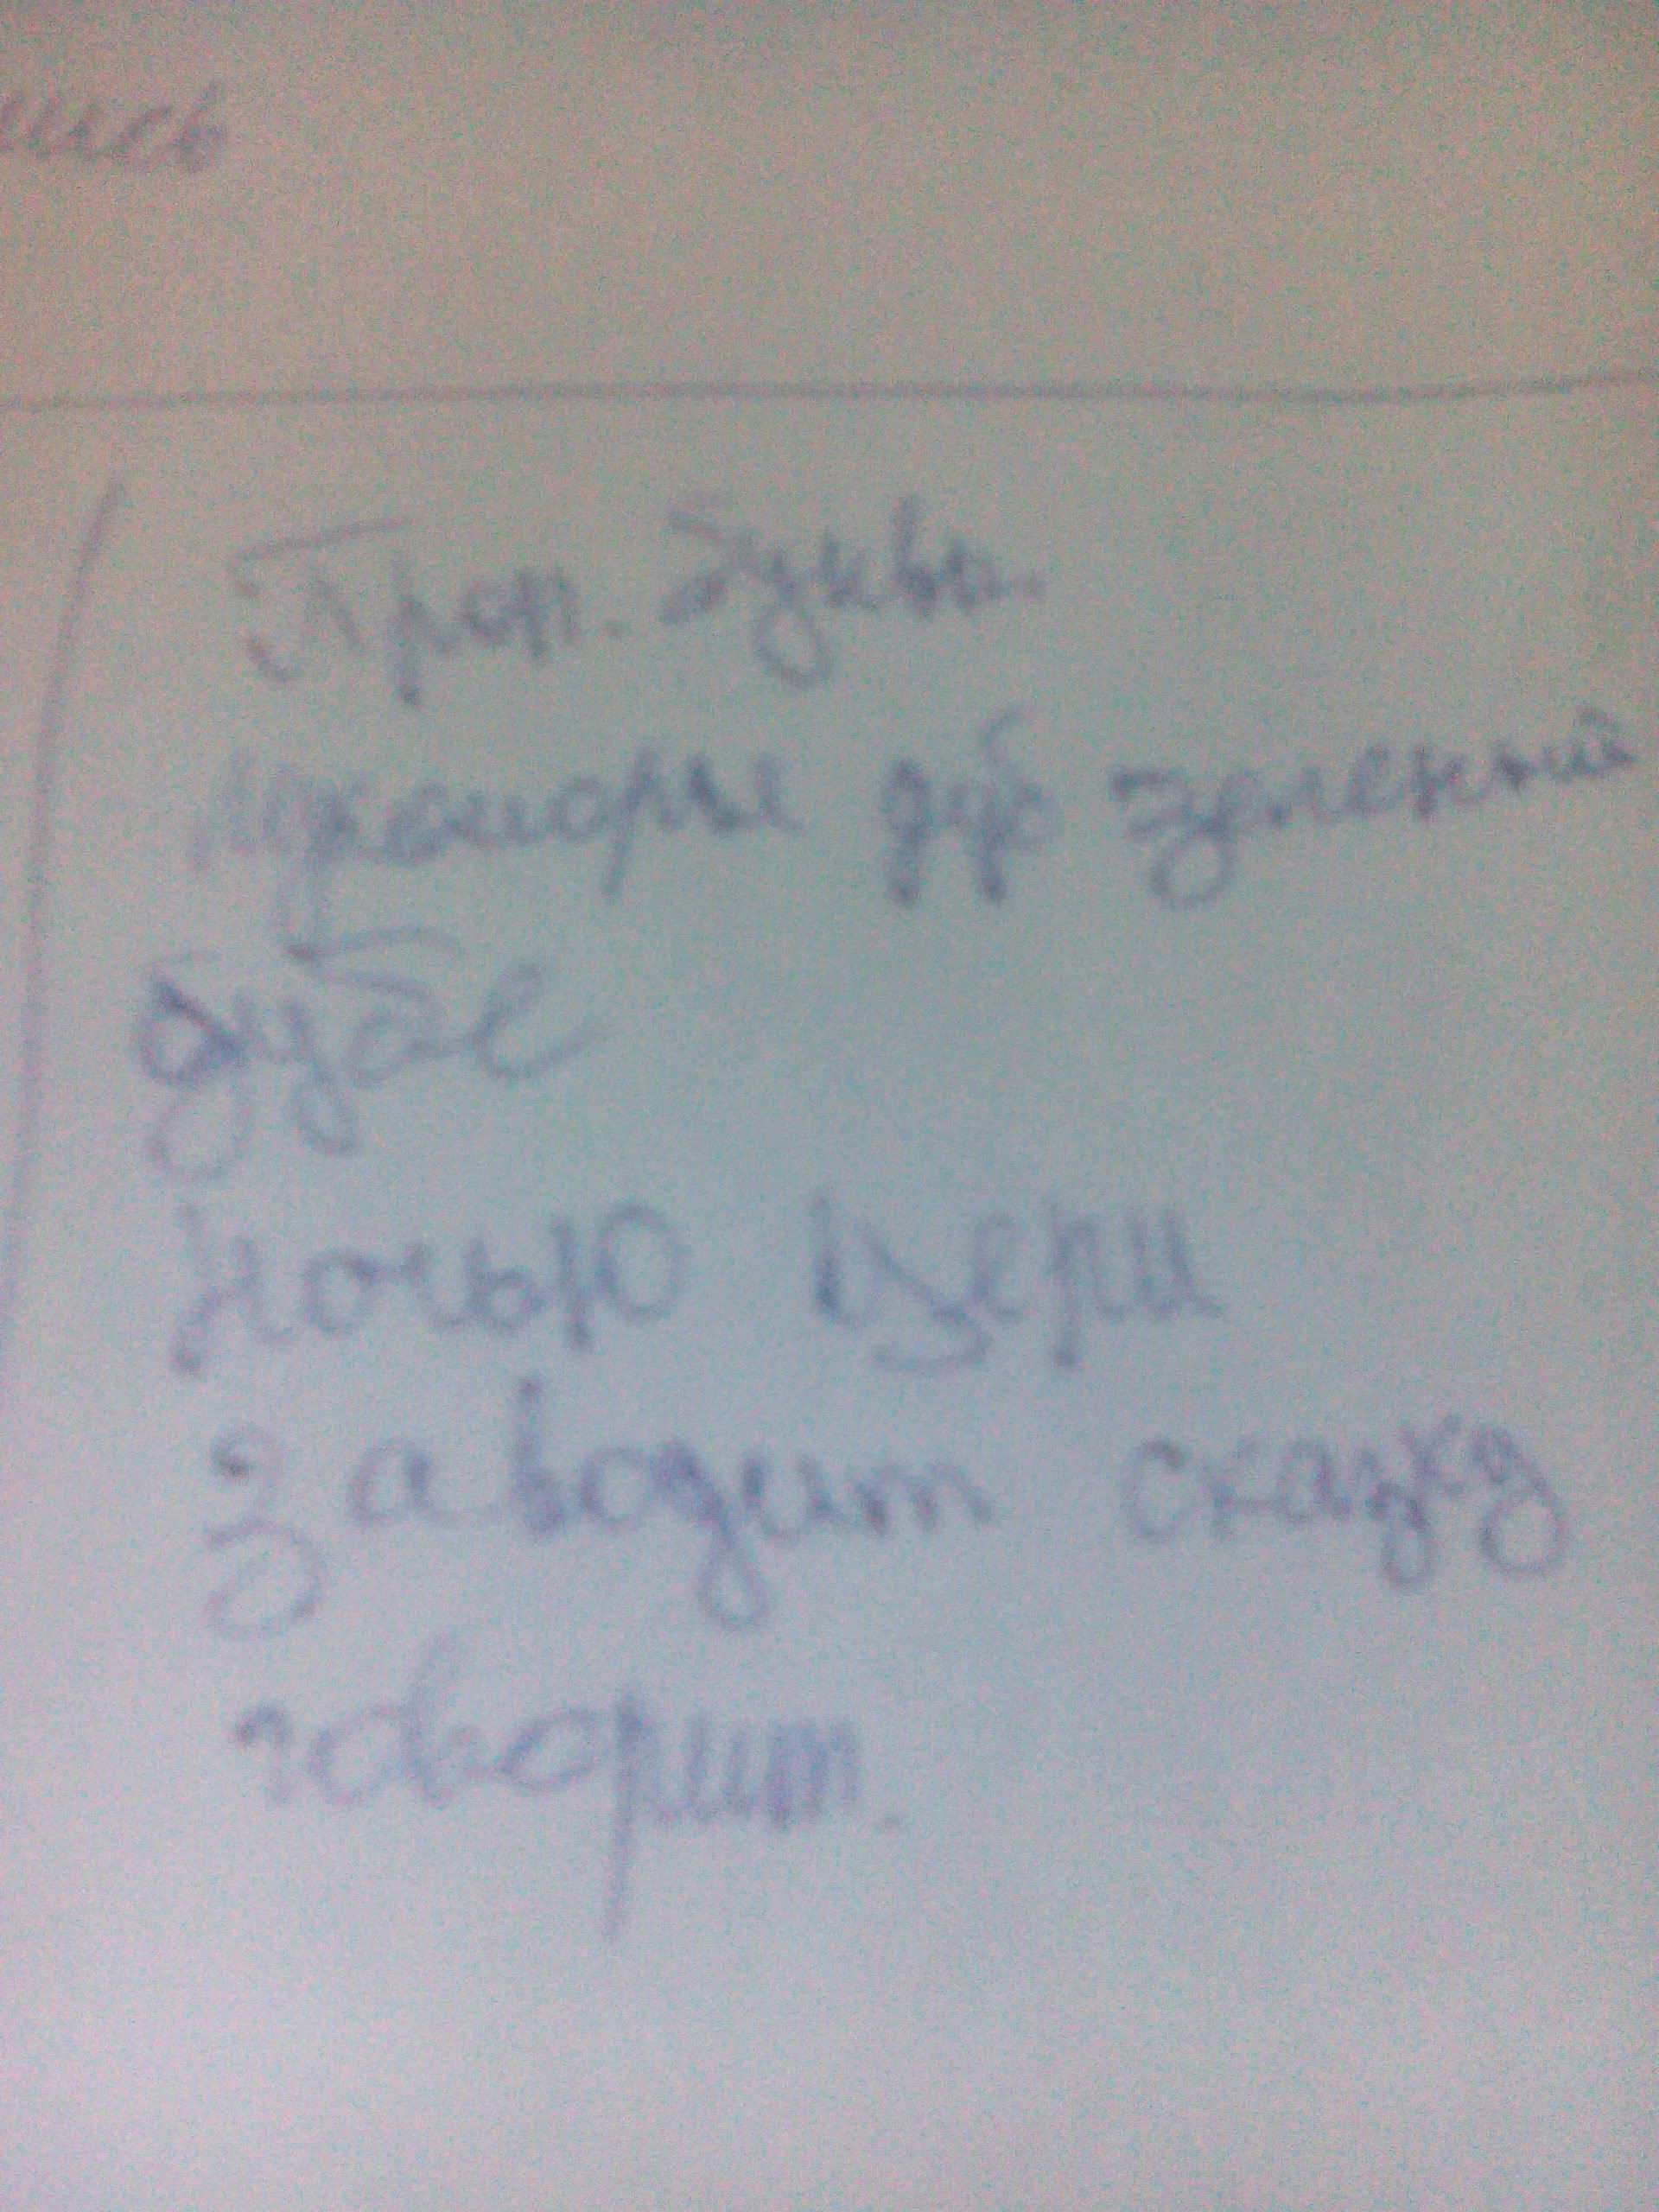 ись
Проп. буква
Лукоморье дуб зеленый
дубе
ночью
заводит сказку
говорит.